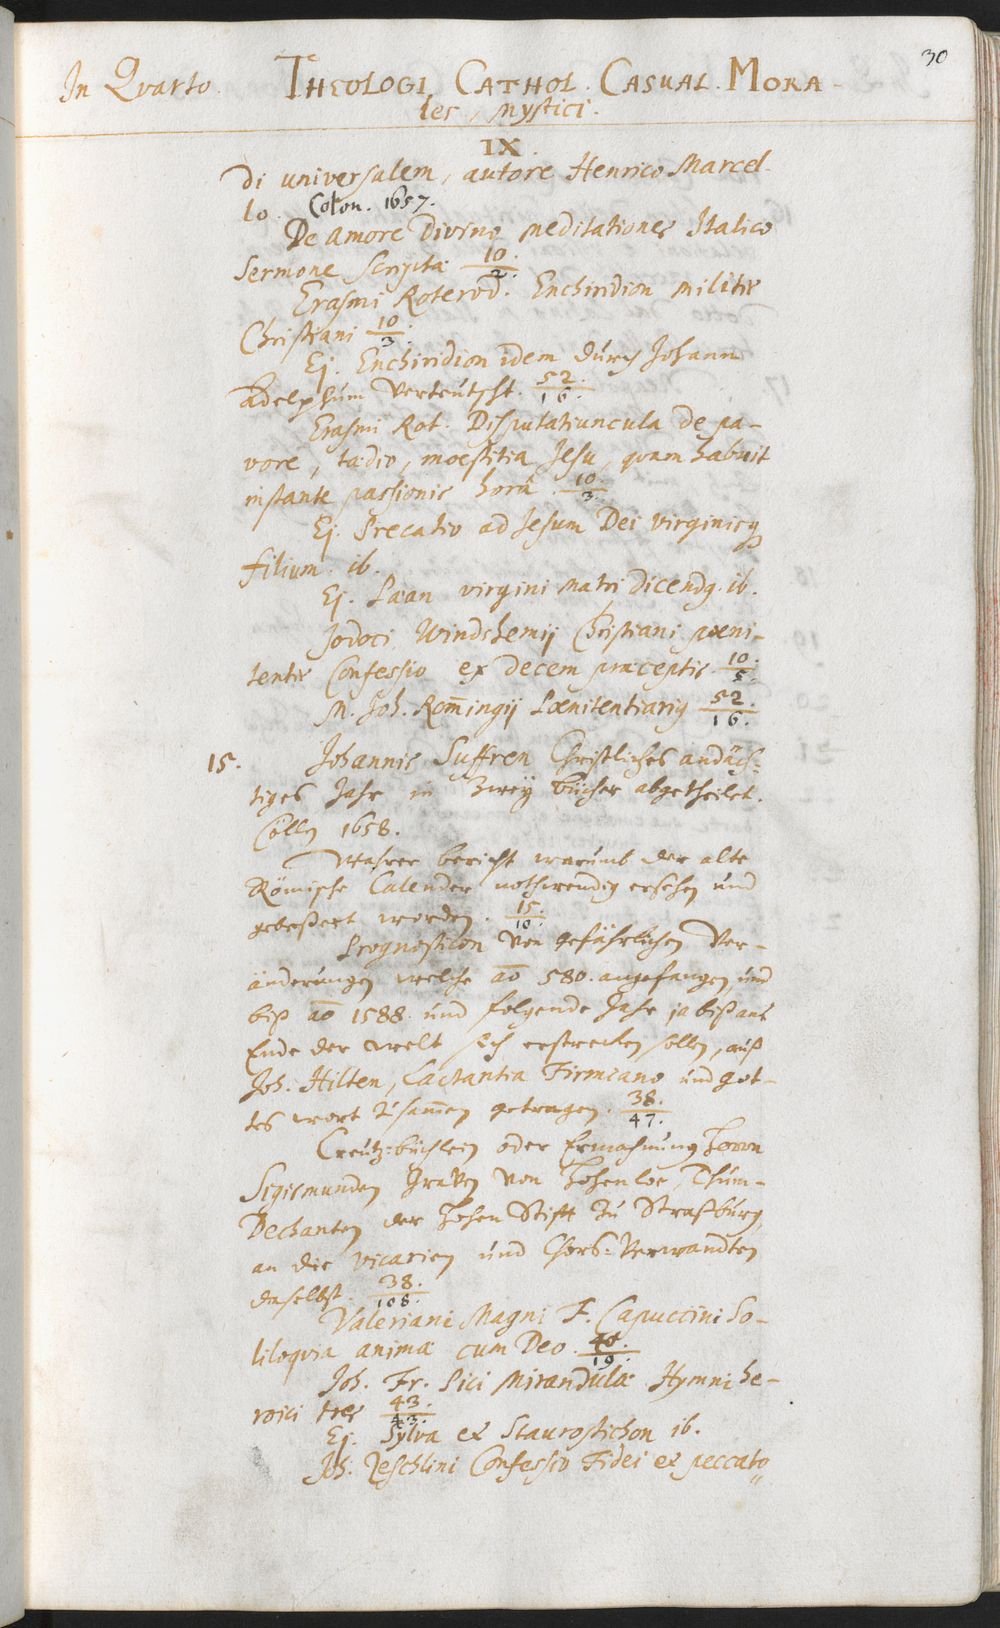 30
In Qvarto. THEOLOGI CATHOL. CASUAL. MORA-
les, Mystici.
IX.
di universalem, autore Henrico Marcel-
lo. Colon. 1657.
De Amore Divino meditationes Italico
sermone scripta 10/2.
Erasmi Roterod. Enchiridion militis
Christiani 10/3.
Ej. Enchiridion idem durch Johann
Adelphum verteutscht. 52/16.
Erasmi Rot. Disputatiuncula de pa-
vore, tædio, moestitia Jesu, quam habuit
instante passionis horâ. 10/3.
Ej. Precatio ad Jesum Dei virginisq
filium. ib.
Ej. Pæan virgini matri dicendg. ib.
Jodoci Windshemij Christiani poeni-
tentis Confessio ex decem præceptis. 10/5.
M. Joh. Rom̄ingij Poenitentiarig 52/16.
15. Johannis Suffren Christliches andäch-
tiges Jahr in Zwey bücher abgetheilet.
Cölln 1658.
Wahrer bericht warumb der alte
Römische Calender nothwendig ersehen und
gebeßert worden. 15/10.
Prognosticon von gefährlichen Ver-
änderungen welche aō 580. angefangen und
biß aō 1588. und folgende Jahr ja biß ans
Ende der welt sich erstrecken sollen, auß
Joh. Hilten, Lactantia Firmiano und Got-
tes wort Zusam̄en getragen. 38/47.
Creutz-büchlein oder Ermahnung Herrn
Sigismunden Graven von Hohenloe, Thum-
Dechanten der Hohen Stifft Zu Straßburg,
an die vicarien und Chors-Verwandten
daselbst. 38/108.
Valeriani Magni F. Capuccini So-
liloqvia animæ cum Deo. 40/19.
Joh. Fr. Pici Mirandulæ Hymni he-
roici tres 43/43.
Ej. Sylva et Staurostichon ib.
Joh. Zeschlini Confessio Fidei et peccato